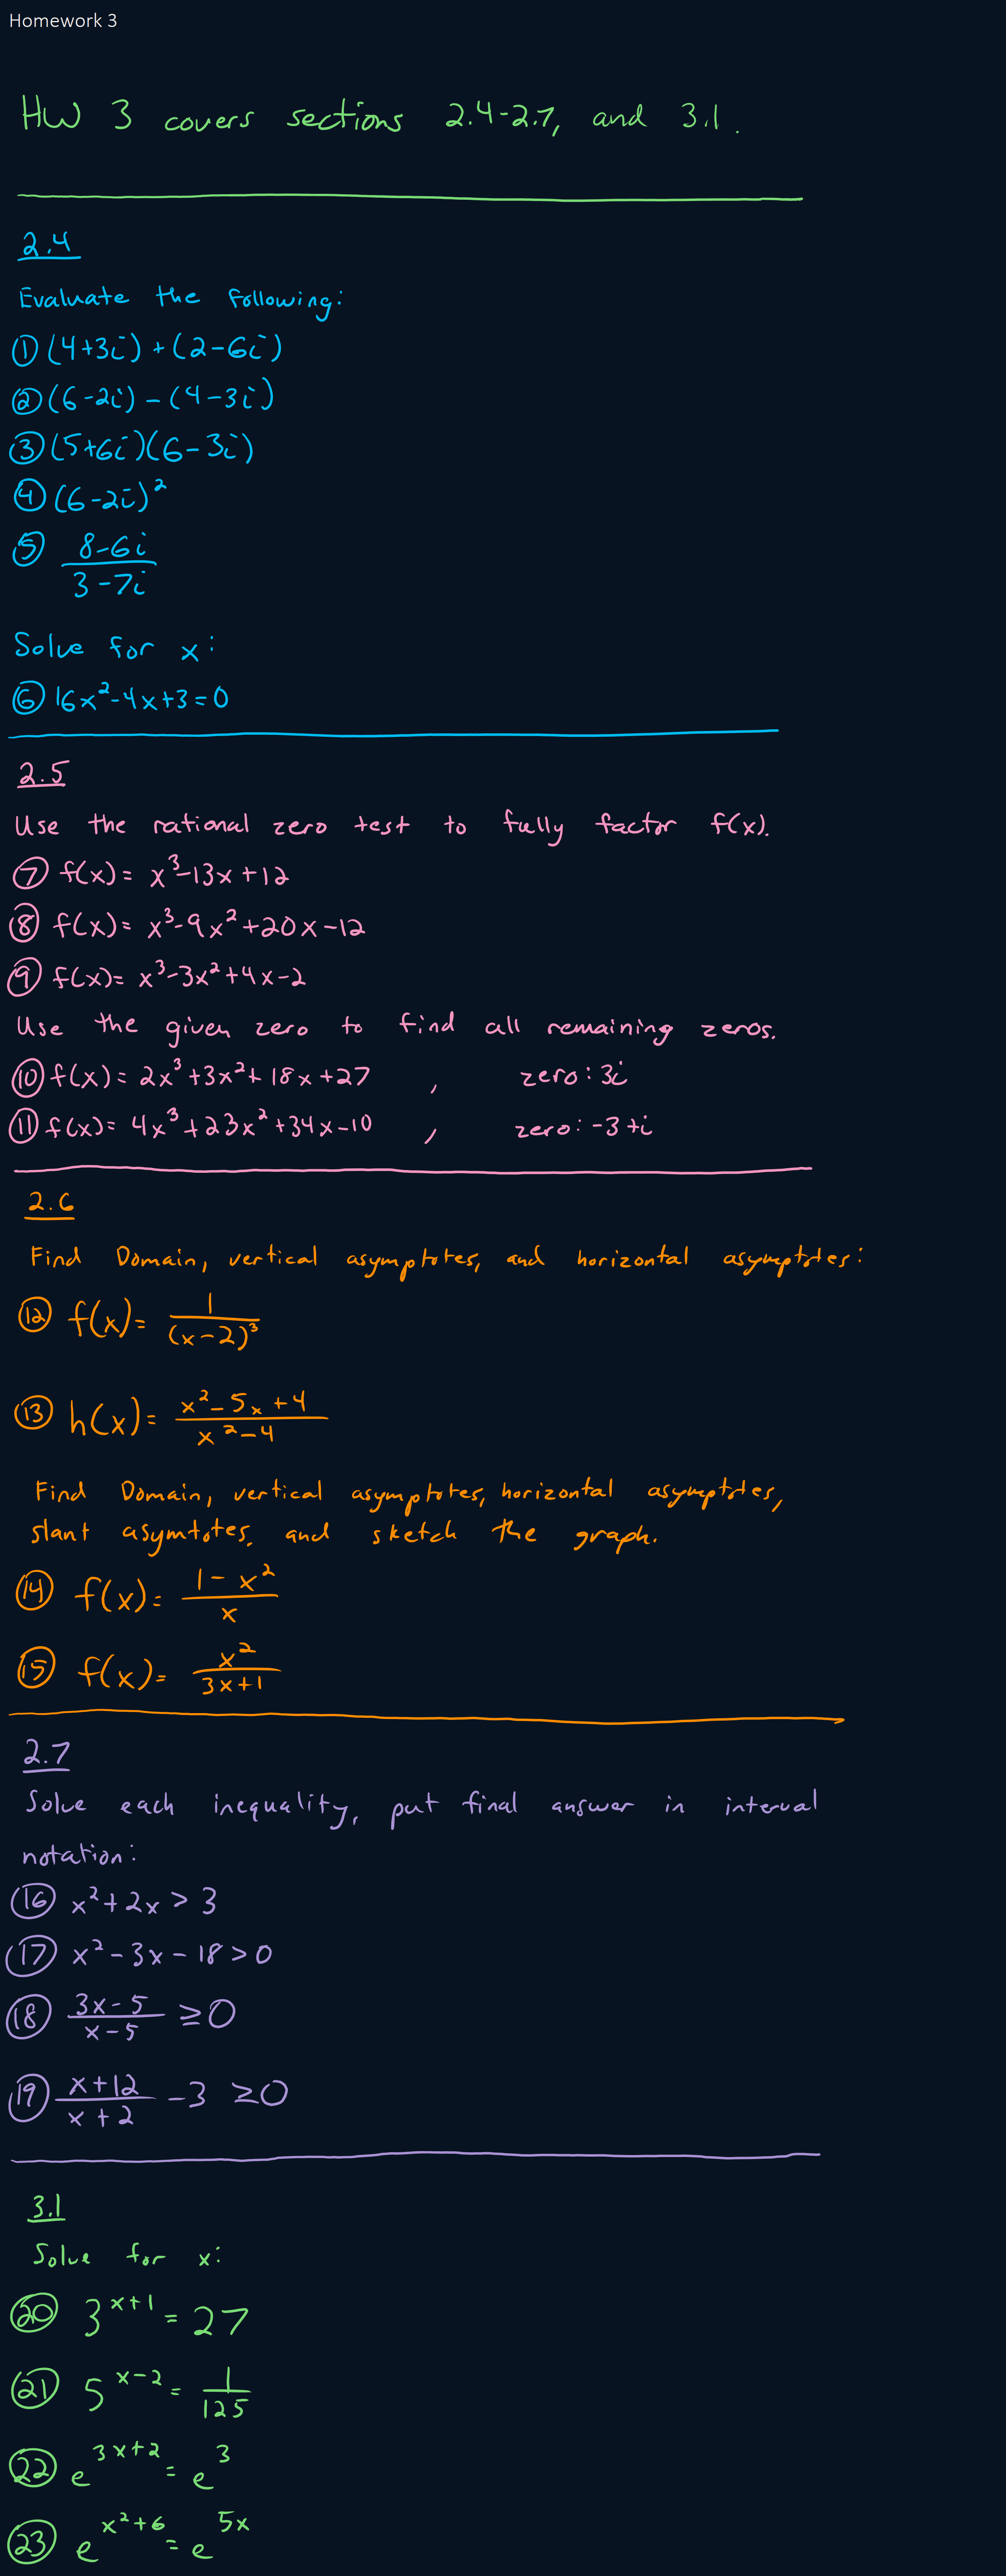 Homework 3
HW 3 covers sections 2.4-2.7, and 3.1.
2.4
Evaluate the following:
① (4+3i)+(2-6i)
② (6-2i)-(4-3i)
③ (5+6i)(6-3i)
④ (6-2i)²
⑤ 8-6i
3-7i
Solve for x:
⑥ 16x²-4x+3=0
2.5
Use the rational zero test to fully factor f(x).
⑦ f(x)= x³-13x+12
⑧ f(x)= x³-9x²+20x-12
⑨ f(x)= x³-3x²+4x-2
Use the given zero to find all remaining zeros.
⑩ f(x)= 2x³+3x²+18x+27 , zero: 3i
⑪ f(x)= 4x³+23x²+34x-10 , zero: -3+i
2.6
Find Domain, vertical asymptotes, and horizontal asymptotes:
⑫ f(x)= 1
(x-2)³
⑬ h(x)= x²-5x+4
x²-4
Find Domain, vertical asymptotes, horizontal asymptotes,
slant asymtotes, and sketch the graph.
⑭ f(x)= 1-x²
x
⑮ f(x)= x²
3x+1
2.7
Solve each inequality, put final answer in interval
notation:
⑯ x²+2x > 3
⑰ x²-3x-18>0
⑱ 3x-5 ≥0
x-5
⑲ x+12 -3 ≥0
x+2
3.1
Solve for x:
⑳ 3^x+1 = 27
㉑ 5^x-2 = 1
125
㉒ e^3x+2 = e^3
㉓ e^x²+6 = e^5x